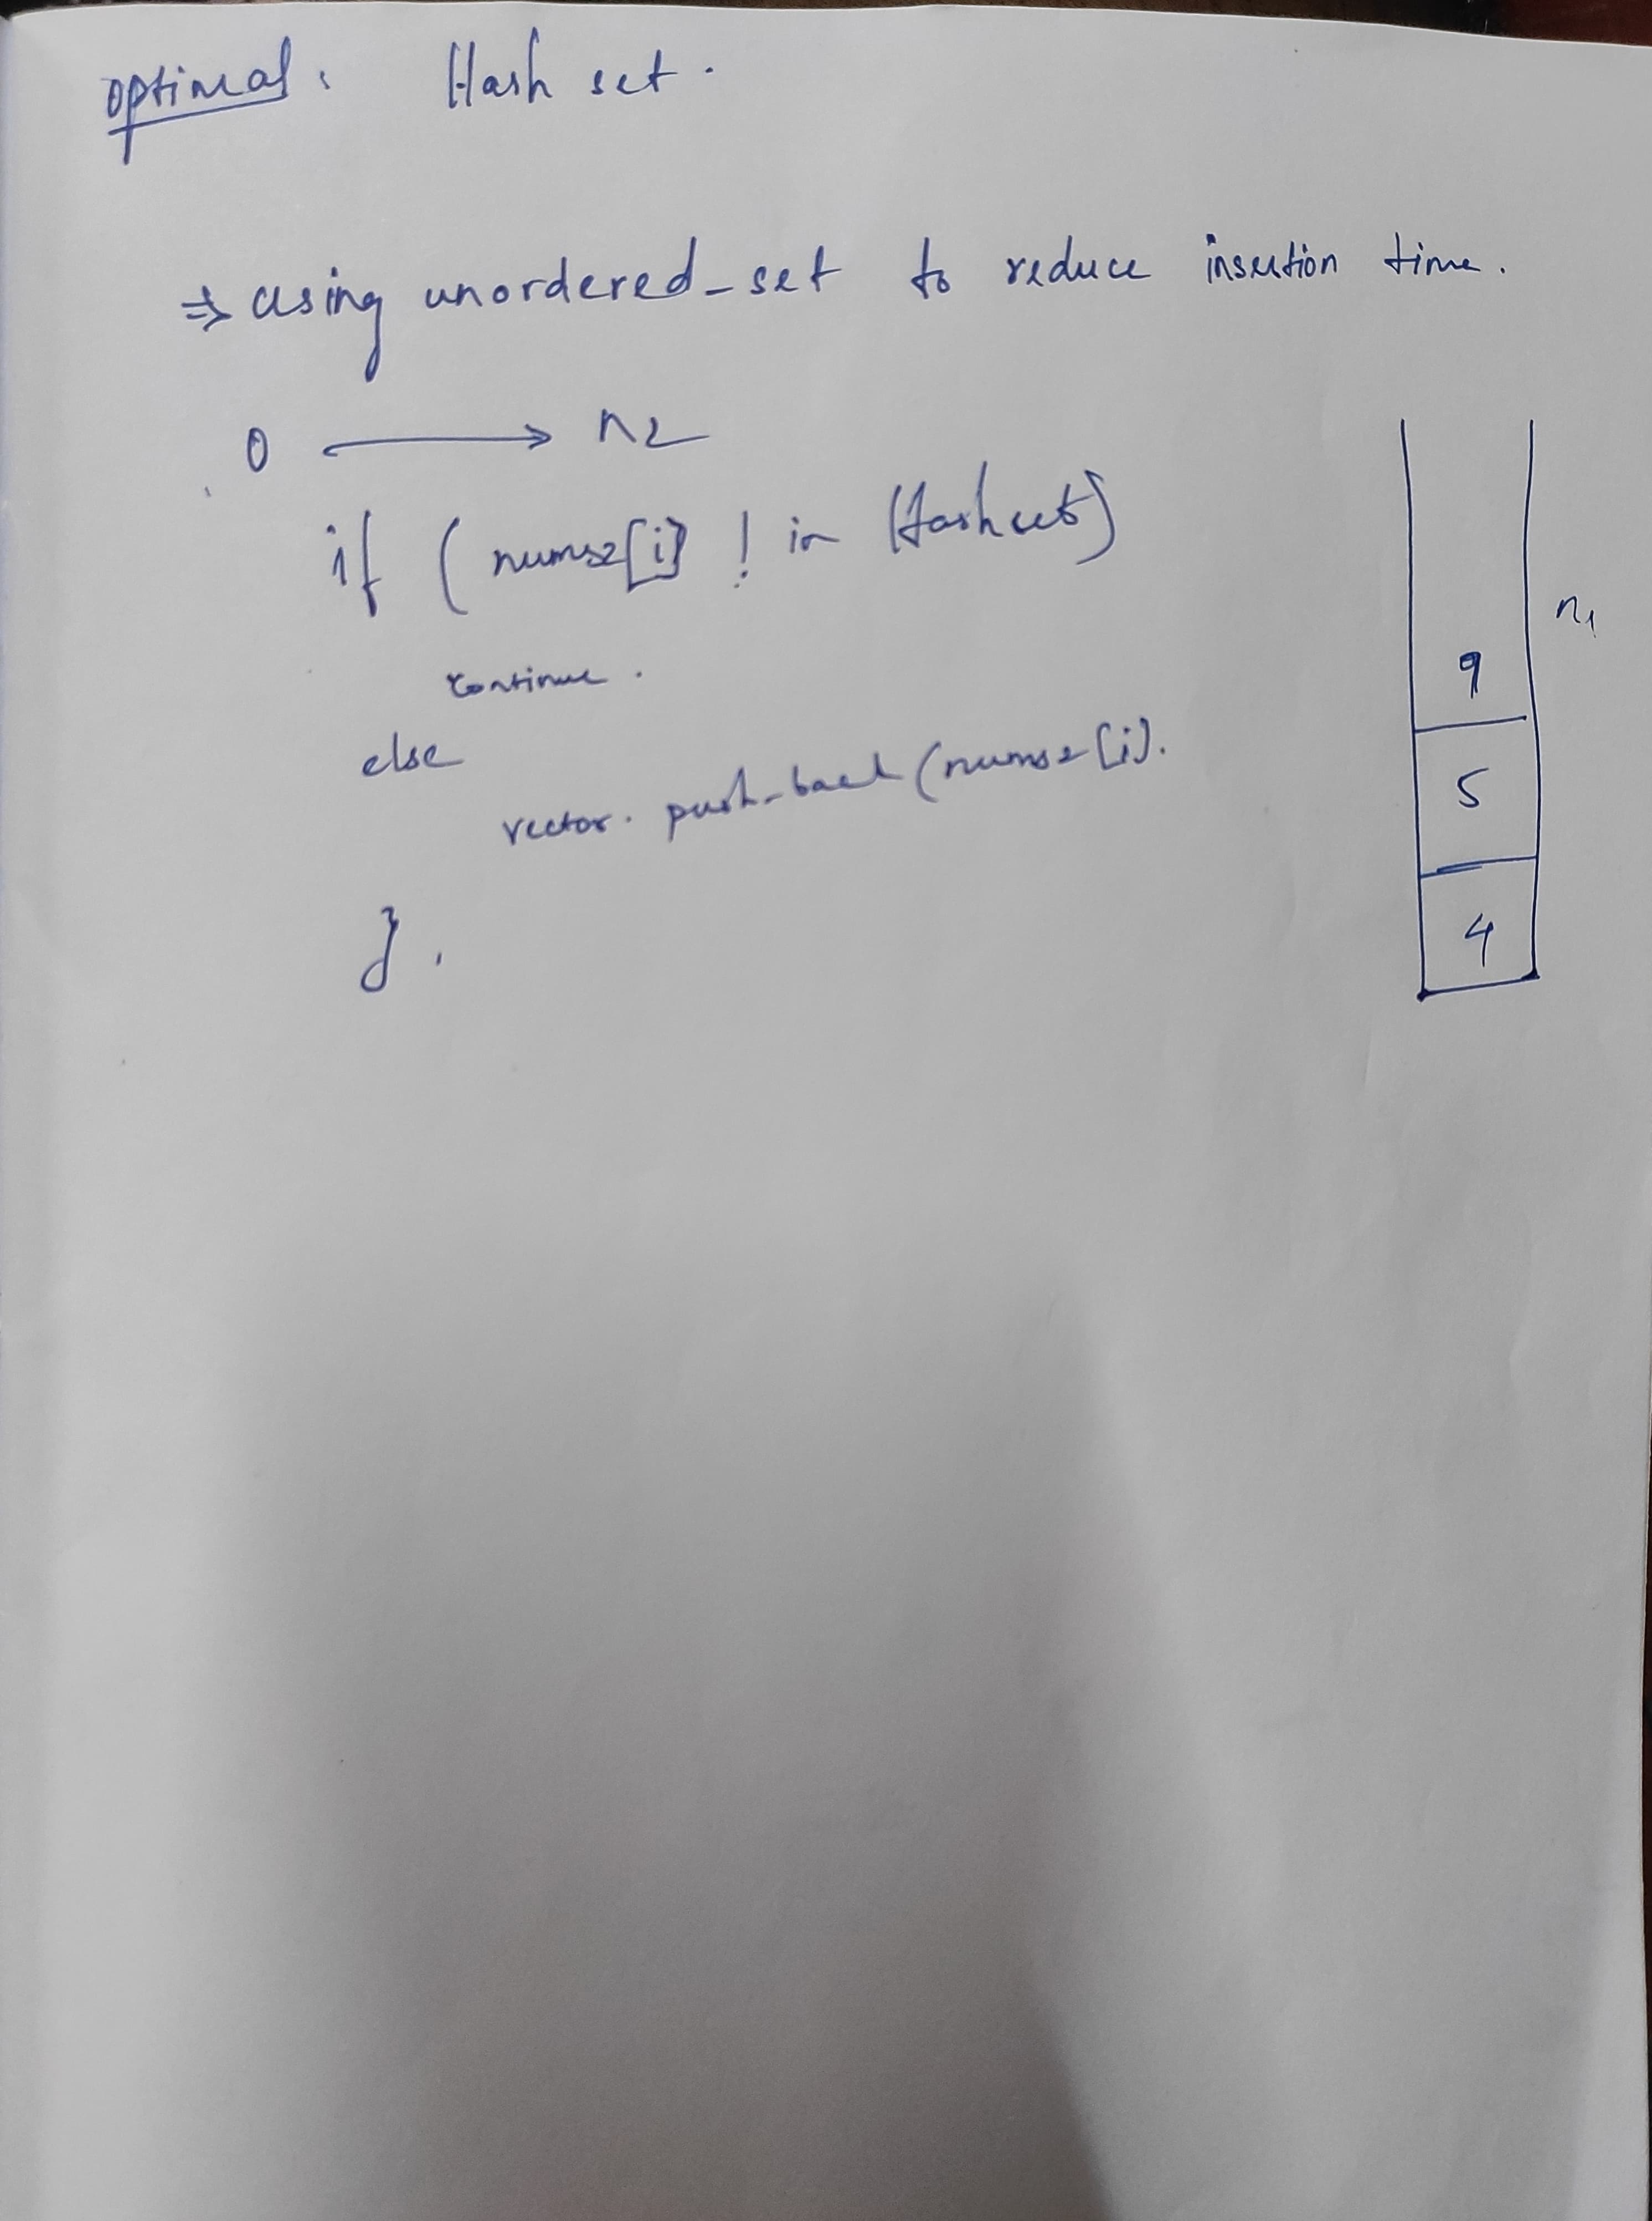 optimal: Hash set.
⇒ using unordered_set to reduce insertion time.
0 → n2
if ( nums2[i] ! in Hashset)
continue.
else
vector. push_back (nums2[i].
}.
n1
9
5
4